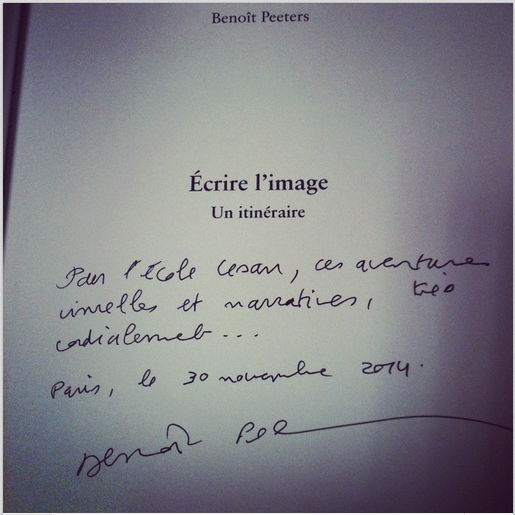 Benoît Peeters
Écrire l'image
Un itinéraire
Pour l'École Cesan, ces aventures
visuelles et narratives, très
cordialement...
Paris, le 30 novembre 2014.
Benoît Pee